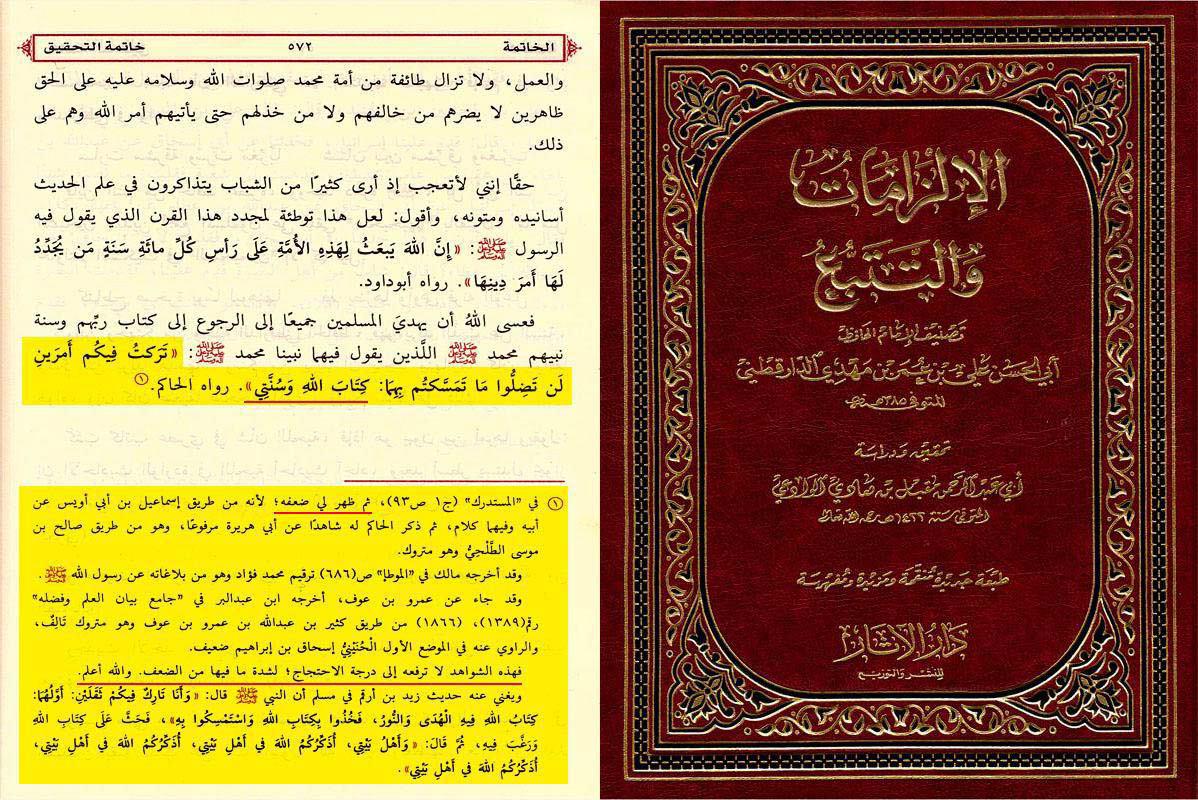 الخاتمة ٥٧٢ خاتمة التحقيق
والعمل، ولا تزال طائفة من أمة محمد صلوات الله وسلامه عليه على الحق
ظاهرين لا يضرهم من خالفهم ولا من خذلهم حتى يأتيهم أمر الله وهم على
ذلك.
حقًّا إنني لأتعجب إذ أرى كثيرًا من الشباب يتذاكرون في علم الحديث
أسانيده ومتونه، وأقول: لعل هذا توطئة لمجدد هذا القرن الذي يقول فيه
الرسول ﷺ: «إِنَّ اللهَ يَبعَثُ لِهَذِهِ الأُمَّةِ عَلَى رَأسِ كُلِّ مائَةِ سَنَةٍ مَن يُجَدِّدُ
لَهَا أَمرَ دِينِهَا». رواه أبوداود.
فعسى اللهُ أن يهديَ المسلمين جميعًا إلى الرجوع إلى كتاب ربِّهم وسنة
نبيهم محمد ﷺ اللَّذين يقول فيهما نبينا محمد ﷺ: «تَرَكتُ فِيكُم أَمرَينِ
لَن تَضِلُّوا مَا تَمَسَّكتُم بِهِمَا: كِتَابَ اللهِ وَسُنَّتِي». رواه الحاكم.①
① في "المستدرك" (ج١ ص٩٣)، ثم ظهر لي ضعفه؛ لأنه من طريق إسماعيل بن أبي أويس عن
أبيه وفيهما كلام، ثم ذكر الحاكم له شاهدًا عن أبي هريرة مرفوعًا، وهو من طريق صالح بن
موسى الطَّلْحِيُّ وهو متروك.
وقد أخرجه مالك في "الموطإ" ص(٦٨٦) ترقيم محمد فؤاد وهو من بلاغاته عن رسول الله ﷺ.
وقد جاء عن عمرو بن عوف، أخرجه ابن عبدالبر في "جامع بيان العلم وفضله"
رقم(١٣٨٩)، (١٨٦٦) من طريق كثير بن عبدالله بن عمرو بن عوف وهو متروك تَالِفٌ،
والراوي عنه في الموضع الأول الْحُنَيْنِيُّ إسحاق بن إبراهيم ضعيف.
فهذه الشواهد لا ترفعه إلى درجة الاحتجاج؛ لشدة ما فيها من الضعف. والله أعلم.
ويغني عنه حديث زيد بن أرقم في مسلم أن النبي ﷺ قال: «وَأَنَا تَارِكٌ فِيكُمْ ثَقَلَيْنِ: أَوَّلُهُمَا:
كِتَابُ اللهِ فِيهِ الْهُدَى وَالنُّورُ، فَخُذُوا بِكِتَابِ اللهِ وَاسْتَمْسِكُوا بِهِ»، فَحَثَّ عَلَى كِتَابِ اللهِ
وَرَغَّبَ فِيهِ، ثُمَّ قَالَ: «وَأَهْلُ بَيْتِي، أُذَكِّرُكُمُ اللهَ فِي أَهْلِ بَيْتِي، أُذَكِّرُكُمُ اللهَ فِي أَهْلِ بَيْتِي،
أُذَكِّرُكُمُ اللهَ فِي أَهْلِ بَيْتِي».
الإلزامات
والتتبع
تصنيف الإمام الحافظ
أبي الحسن علي بن عمر بن مهدي الدارقطني
المتوفى ٣٨٥هـ
تحقيق ودراسة
أبي عبد الرحمن مقبل بن هادي الوادعي
المتوفى سنة ١٤٢٢هـ رحمه الله تعالى
طبعة جديدة منقحة ومزيدة ومفهرسة
دار الآثار
للنشر والتوزيع